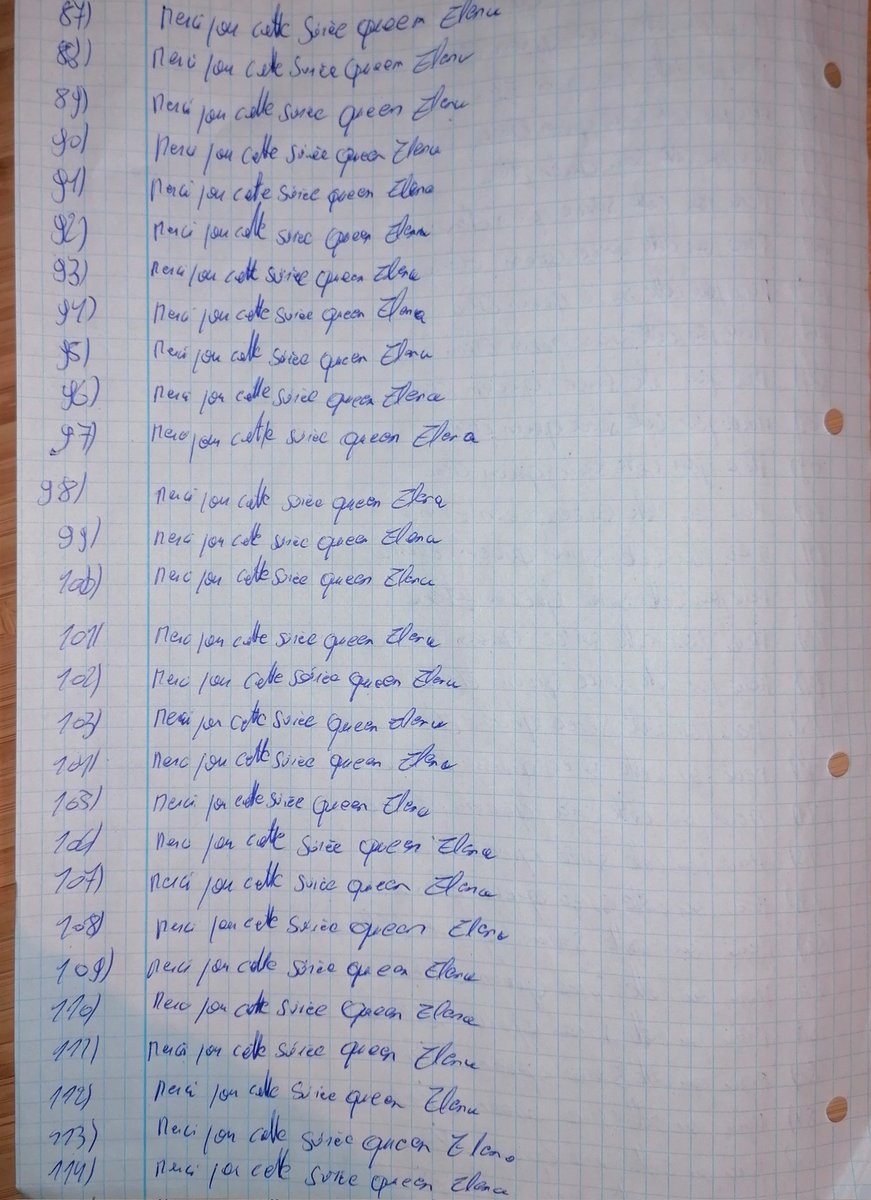 87) Merci pour cette Soirée queen Elena
88) Merci pour cette Soirée queen Elena
89) Merci pour cette Soirée queen Elena
90) Merci pour cette Soirée queen Elena
91) Merci pour cette Soirée queen Elena
92) Merci pour cette Soirée queen Elena
93) Merci pour cette Soirée queen Elena
94) Merci pour cette Soirée queen Elena
95) Merci pour cette Soirée queen Elena
96) Merci pour cette Soirée queen Elena
97) Merci pour cette Soirée queen Elena
98) Merci pour cette Soirée queen Elena
99) Merci pour cette Soirée queen Elena
100) Merci pour cette Soirée queen Elena
101) Merci pour cette Soirée queen Elena
102) Merci pour cette Soirée queen Elena
103) Merci pour cette Soirée queen Elena
104) Merci pour cette Soirée queen Elena
105) Merci pour cette Soirée queen Elena
106) Merci pour cette Soirée queen Elena
107) Merci pour cette Soirée queen Elena
108) Merci pour cette Soirée queen Elena
109) Merci pour cette Soirée queen Elena
110) Merci pour cette Soirée queen Elena
111) Merci pour cette Soirée queen Elena
112) Merci pour cette Soirée queen Elena
113) Merci pour cette Soirée queen Elena
114) Merci pour cette Soirée queen Elena